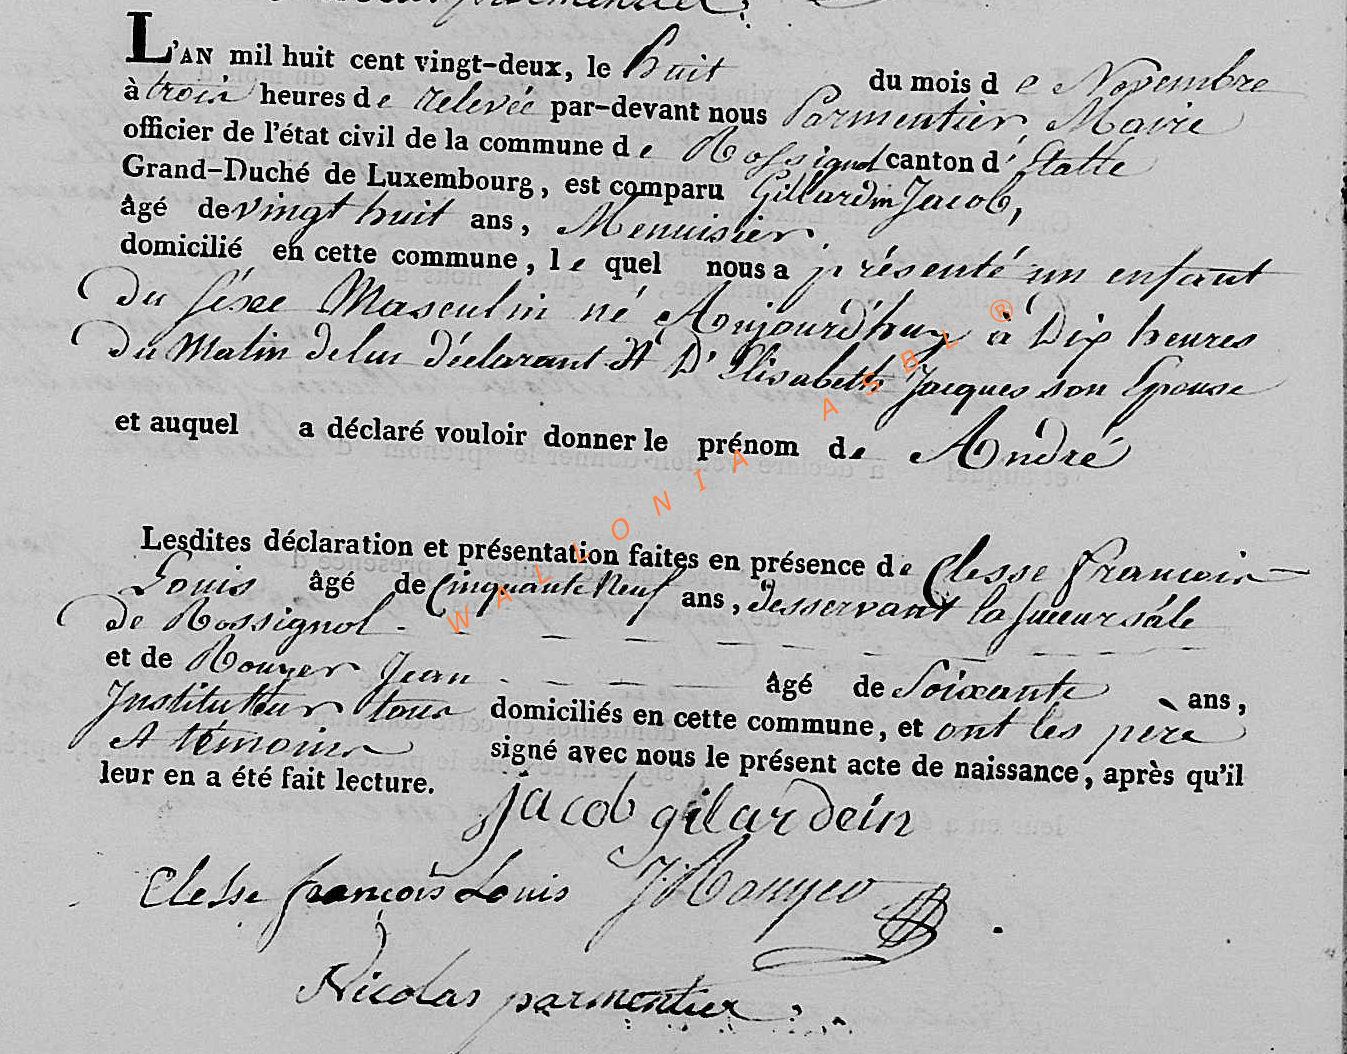 L'AN mil huit cent vingt-deux, le huit du mois d e Novembre
à trois heures de relevée par-devant nous Parmentier, Maire
officier de l'état civil de la commune de Rossignol canton d'Etalle
Grand-Duché de Luxembourg, est comparu Gillardin Jacob,
âgé de vingt huit ans, Menuisier,
domicilié en cette commune, le quel nous a présenté un enfant
du séxe Masculin né Aujourd'huy à Dix heures
du Matin de lui déclarant et D'Elisabeth Jacques son Epouse
et auquel a déclaré vouloir donner le prénom de André
Lesdites déclaration et présentation faites en présence de Clesse francois
Louis âgé de Cinquante Neuf ans, desservant la succursale
de Rossignol
et de Rouyer Jean âgé de Soixante ans,
Instituteur tous domiciliés en cette commune, et ont les père
et témoins signé avec nous le présent acte de naissance, après qu'il
leur en a été fait lecture.
jacob gilardein
Clesse françois Louis J Rouyer
Nicolas parmentier
WALLONIA ASBL ®